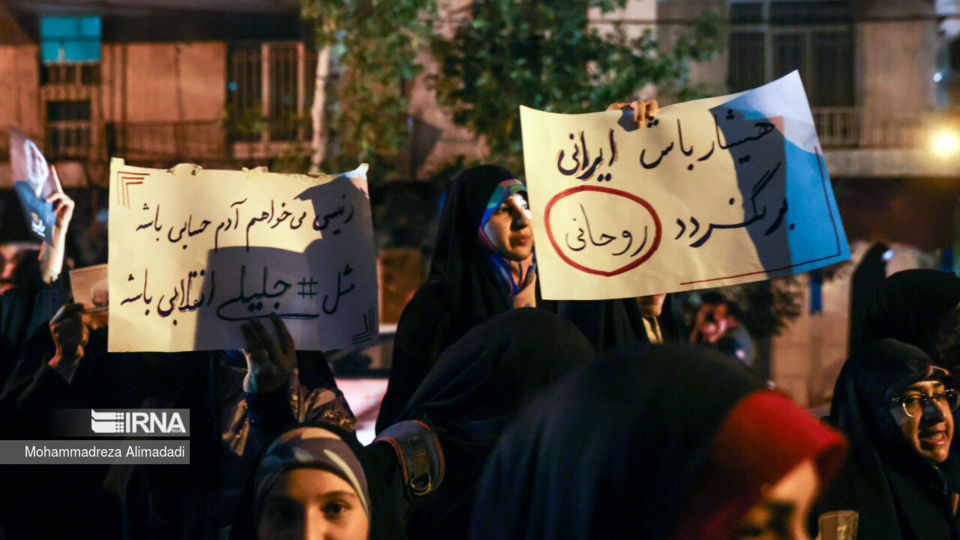 رئیسی می‌خواهم آدم حسابی باشه
مثل #جلیلی انقلابی باشه
هشیار باش ایرانی
روحانی بر نگردد
IRNA
Mohammadreza Alimadadi